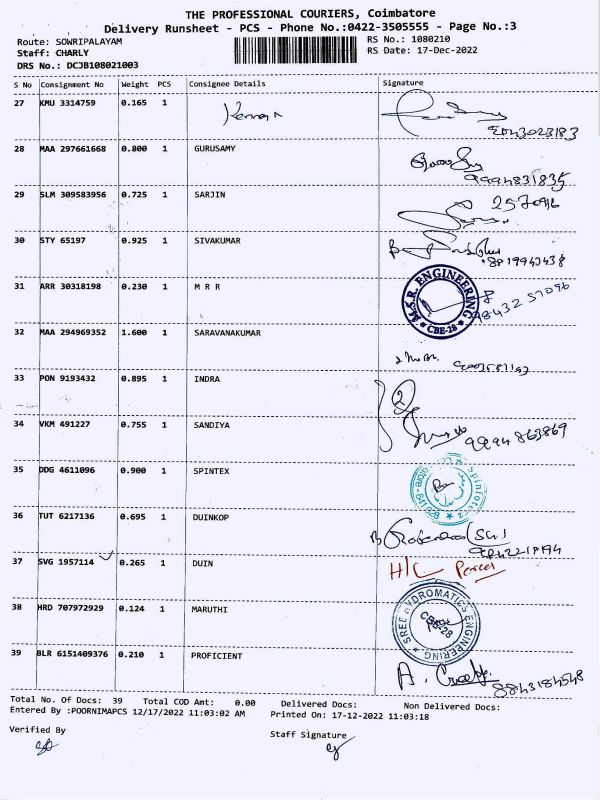 THE PROFESSIONAL COURIERS, Coimbatore
Delivery Runsheet - PCS - Phone No.:0422-3505555 - Page No.:3
Route: SOWRIPALAYAM RS No.: 1080210
Staff: CHARLY RS Date: 17-Dec-2022
DRS No.: DCJB108021003
S No Consignment No Weight PCS Consignee Details Signature
27 KMU 3314759 0.165 1
28 MAA 297661668 0.800 1 GURUSAMY
9994831835
29 SLM 309583956 0.725 1 SARJIN
30 STY 65197 0.925 1 SIVAKUMAR
31 ARR 30318198 0.230 1 M R R
M.S.R. ENGINEERING * CBE-28 *
32 MAA 294969352 1.600 1 SARAVANAKUMAR
33 PON 9193432 0.895 1 INDRA
34 VKM 491227 0.755 1 SANDIYA
9994863869
35 DDG 4611096 0.900 1 SPINTEX
36 TUT 6217136 0.695 1 DUINKOP
37 SVG 1957114 0.265 1 DUIN H/C
38 HRD 707972929 0.124 1 MARUTHI
SREE HYDROMATICS ENGINEERING
39 BLR 6151409376 0.210 1 PROFICIENT
Total No. Of Docs: 39 Total COD Amt: 0.00 Delivered Docs: Non Delivered Docs:
Entered By :POORNIMAPCS 12/17/2022 11:03:02 AM Printed On: 17-12-2022 11:03:18
Verified By Staff Signature